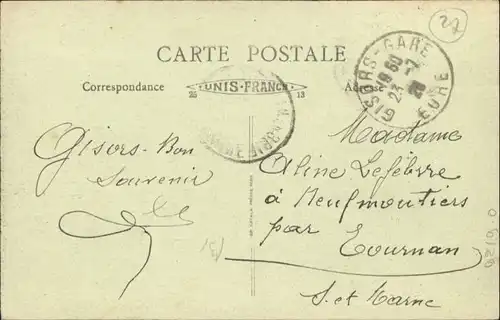 27
CARTE POSTALE
Correspondance
UNIS-FRANCE
Adresse
25
13
GISORS-GARE
19 60
23 -2
26
EURE
Gisors-Bon
Souvenir
Madame
Aline Lefébvre
à Neufmoutiers
par
Tournan
S. et Marne